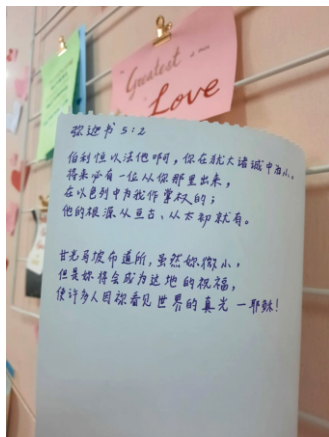 Greatest
Love
弥迦书 5:2
伯利恒以法他啊，你在犹大诸城中为小。
将来必有一位从你那里出来，
在以色列中为我作掌权的；
他的根源从亘古、从太初就有。
甘光马坡布道所，虽然妳微小，
但是妳将会成为这地的祝福，
使许多人因祢看见世界的真光 — 耶稣！